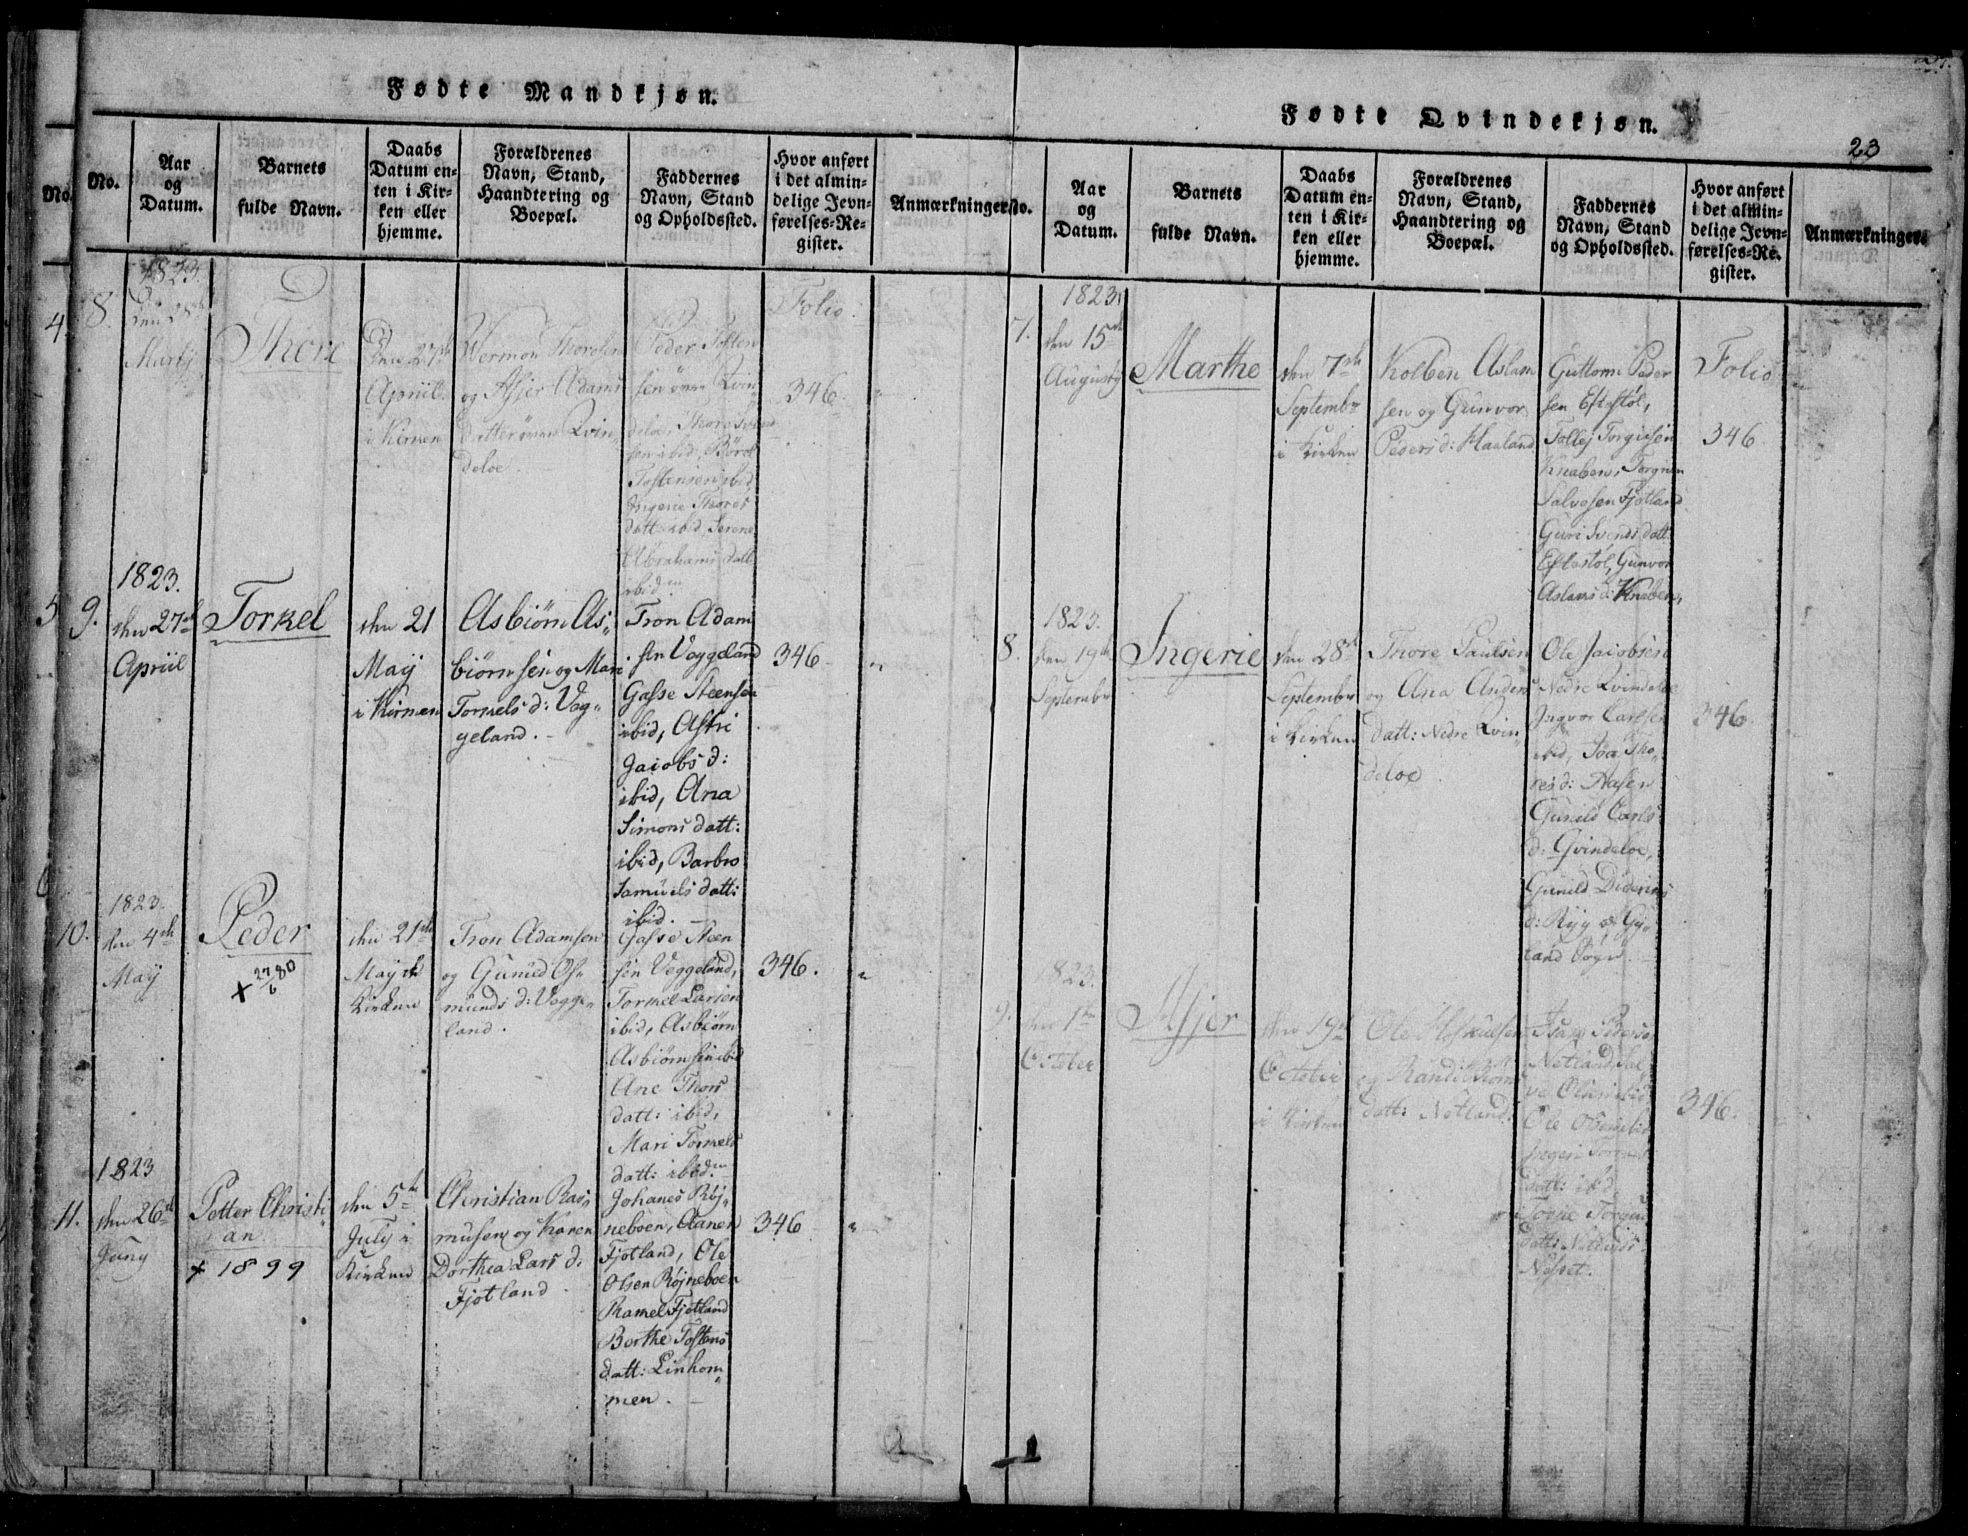 Fødte Mandkjøn.
No.
No.
Aar
og
Datum.
Barnets
fulde Navn.
Daabs
Datum en-
ten i Kir-
ken eller
hjemme.
Forældrenes
Navn, Stand,
Haandtering og
Boepæl.
Faddernes
Navn, Stand
og Opholdssted.
Hvor anført
i det almin-
delige Jevn-
førelses-Re-
gister.
Anmærkninger.
4.
8.
1823.
Martj
Thore
Den 27de
Apriil
i Kirken
Wermon Thorolsen
og Asjer Adams
datter øvre Qvin
deloe.
Peder Tosten
sen øvre Qvin
deloe, Thore
sen ibid,
Tostensen ibid,
Ingerie Thores
datt: ibid, Serene
Abrahams datt
ibid.
Folio.
346
5
9.
1823.
den 27de
Apriil
Torkel
den 21
Maÿ
i Kirken
Asbiørn As„
biørnsen og Mari
Torkels d: Vog„
geland. -
Tron Adam
sen Voggeland
Gasse Steensen
ibid, Astri
Jacobs d:
ibid, Ana
Simons datt:
ibid, Barbro
Samuels datt:
ibid. -
346
„
6
10.
1823.
den 4de
Maÿ
Peder
+ 27/6 80
den 21de
Maÿ i
Kirken
Tron Adamsen
og Gunild Os„
munds d: Vogge„
land.
Gasse Steen
sen Voggeland,
Torkel Larsen
ibid, Asbiørn
Asbiørnsen ibid
Ane Thors
datt: ibid,
Mari Torkels
datt: ibid.
346.
„
11.
1823
den 26de
Juny
Petter Christi
„an
+ 1899
den 5te
July i
Kirken
Christian Ras„
musen og Karen
Dorthea Lars d:
Fjotland.
Johanes Røj„
neboen, Aanen
Fjotland, Ole
Olsen Røjneboen
Ramel Fjotland
Borthe Tostens
datt: Linhom„
men. -
346
„
Fødte Qvindekjøn.
23
No.
Aar
og
Datum.
Barnets
fulde Navn.
Daabs
Datum en-
ten i Kir-
ken eller
hjemme.
Forældrenes
Navn, Stand,
Haandtering og
Boepæl.
Faddernes
Navn, Stand
og Opholdssted.
Hvor anført
i det almin-
delige Jevn-
førelses-Re-
gister.
Anmærkninger.
7.
1823.
den 15de
Augusty
Marthe
den 7de
Septembr
i Kirken
Kolben Aslam
sen og Gunvor
Peders d: Haaland
Guttorm Peder
sen Eftestøl,
Tollej Torgiusen
Knaben, Torgrim
Salvesen Fjotland
Guri Svends datt:
Eftestøl, Gunvor
Aslams d: Knaben,
Folio
346
8.
1823.
den 19de
Septembr
Ingerie
den 28de
Septembr
i Kirken
Thore Paulsen
og Ana Anders
datt: Nedre Qvin„
deloe
Ole Jacobsen
Nedre Qvindeloe
Ingvor Carlsen
ibid, Joa, Tho„
res d: Aasen
Gunild Carls
d: Qvindeloe,
Gunild Dideriks
d: Ryg af Gy„
land Sogn.
346.
9.
1823.
den 1te
October
Asjer
den 19de
October
i Kirken
datt: Netland.
Netland,
Ole Olsen ibid
datt: ibid,
Nesset.
346.